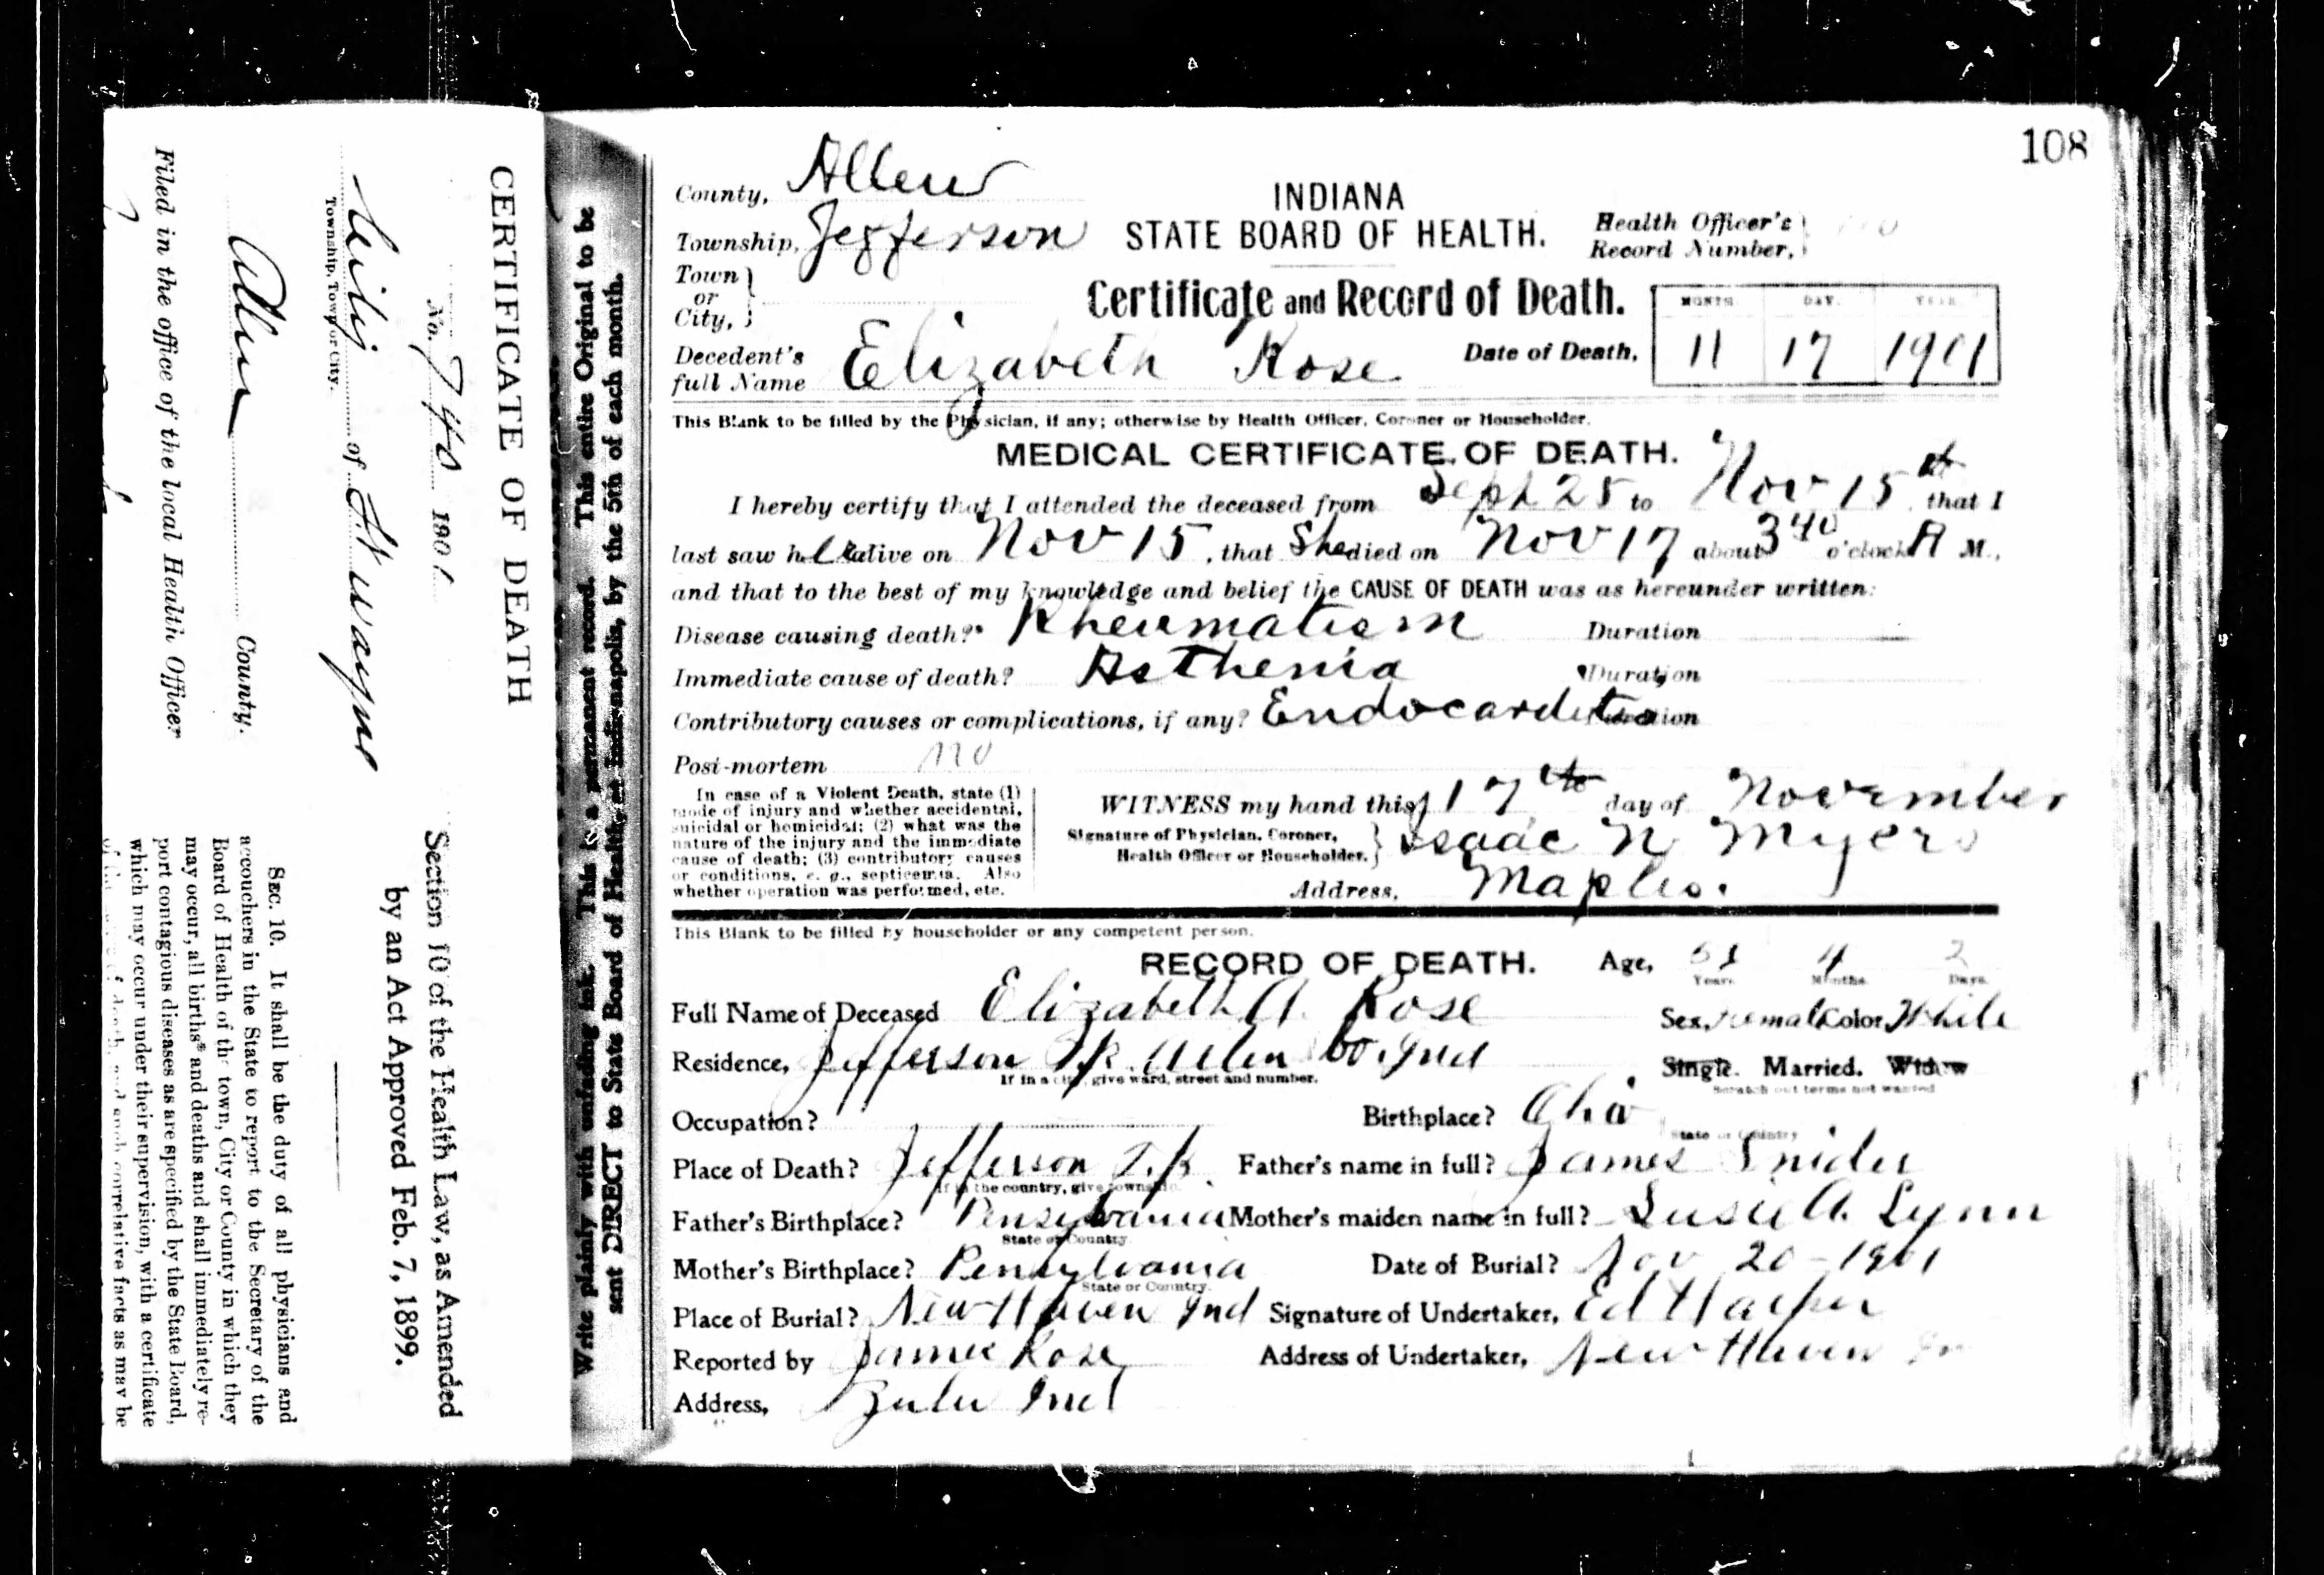 108
County, Allen
Township, Jefferson
Town or City,
INDIANA
STATE BOARD OF HEALTH.
Health Officer's Record Number,
Certificate and Record of Death.
Decedent's full Name Elizabeth Rose
Date of Death, MONTH 11 DAY. 17 YEAR 1901
This Blank to be filled by the Physician, if any; otherwise by Health Officer, Coroner or Householder.
MEDICAL CERTIFICATE OF DEATH.
I hereby certify that I attended the deceased from Sept 25 to Nov 15th, that I
last saw her alive on Nov 15, that She died on Nov 17 about 3 40 o'clock A M.,
and that to the best of my knowledge and belief the CAUSE OF DEATH was as hereunder written:
Disease causing death?* Rheumatism Duration
Immediate cause of death? Asthenia Duration
Contributory causes or complications, if any? Endocarditis Duration
Post-mortem no
In case of a Violent Death, state (1)
mode of injury and whether accidental,
suicidal or homicidal; (2) what was the
nature of the injury and the immediate
cause of death; (3) contributory causes
or conditions, e. g., septicemia. Also
whether operation was performed, etc.
WITNESS my hand this 17th day of November
Signature of Physician, Coroner, Health Officer or Householder. Isaac N Myers
Address, Maples.
This Blank to be filled by householder or any competent person.
RECORD OF DEATH. Age, Years 4 Months 2 Days
Full Name of Deceased Elizabeth A. Rose Sex, Female Color White
Residence, Jefferson Tp. Allen Co. Ind Single. Married. Widow
If in a city, give ward, street and number. Scratch out terms not wanted
Occupation? Birthplace? Ohio
State or Country
Place of Death? Jefferson T.p. Father's name in full? James Snider
If in the country, give township.
Father's Birthplace? Pensylvania Mother's maiden name in full? Susie A. Lynn
State or Country
Mother's Birthplace? Pensylvania Date of Burial? Nov 20-1901
State or Country
Place of Burial? New Haven Ind Signature of Undertaker, Ed Harper
Reported by James Rose Address of Undertaker, New Haven
Address, Zulu Ind
Write plainly with unfading ink. This is a permanent record. This entire Original to be
sent DIRECT to State Board of Health, at Indianapolis, by the 5th of each month.
CERTIFICATE OF DEATH
No. 740 1901
City of Ft Wayne
Township, Town or City.
Allen County.
Filed in the office of the local Health Officer
Section 10 of the Health Law, as Amended
by an Act Approved Feb. 7, 1899.
SEC. 10. It shall be the duty of all physicians and
accouchers in the State to report to the Secretary of the
Board of Health of the town, City or County in which they
may occur, all births* and deaths and shall immediately re-
port contagious diseases as are specified by the State Board,
which may occur under their supervision, with a certificate
correlative facts as may be